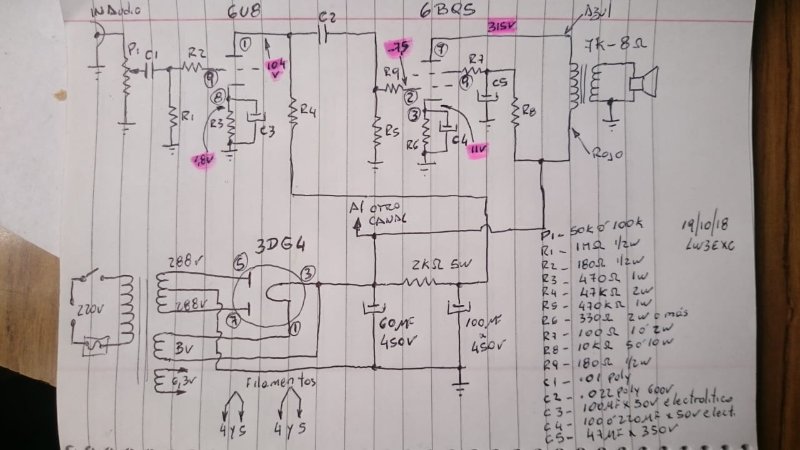 IN Audio
6U8
C2
6BQ5
315V
Azul
7K-8Ω
P1
C1
R2
①
104 V
-75
⑨
R7
R9
⑨
C5
⑧
②
R8
R1
R3
C3
R4
③
R5
R6
C4
1,8V
11V
Rojo
Al otro
canal
3DG4
288V
⑤
③
2KΩ 5W
220V
288V
⑦
①
60µF
450V
100µF
x
450V
3V
6,3V
Filamentos
4 y 5
4 y 5
19/10/18
LW3EXC
P1 - 50K ó 100K
R1 - 1MΩ 1/2W
R2 - 180Ω 1/2W
R3 - 470Ω 1W
R4 - 47KΩ 2W
R5 - 470KΩ 1W
R6 - 330Ω 2W o más
R7 - 100Ω 1ó 2W
R8 - 10KΩ 5ó 10W
R9 - 180Ω 1/2W
C1 - .01 poly
C2 - .022 poly 600V
C3 - 100µF x 50V electrolitico
C4 - 100ó 220µF x 50V elect.
C5 - 47µF x 350V